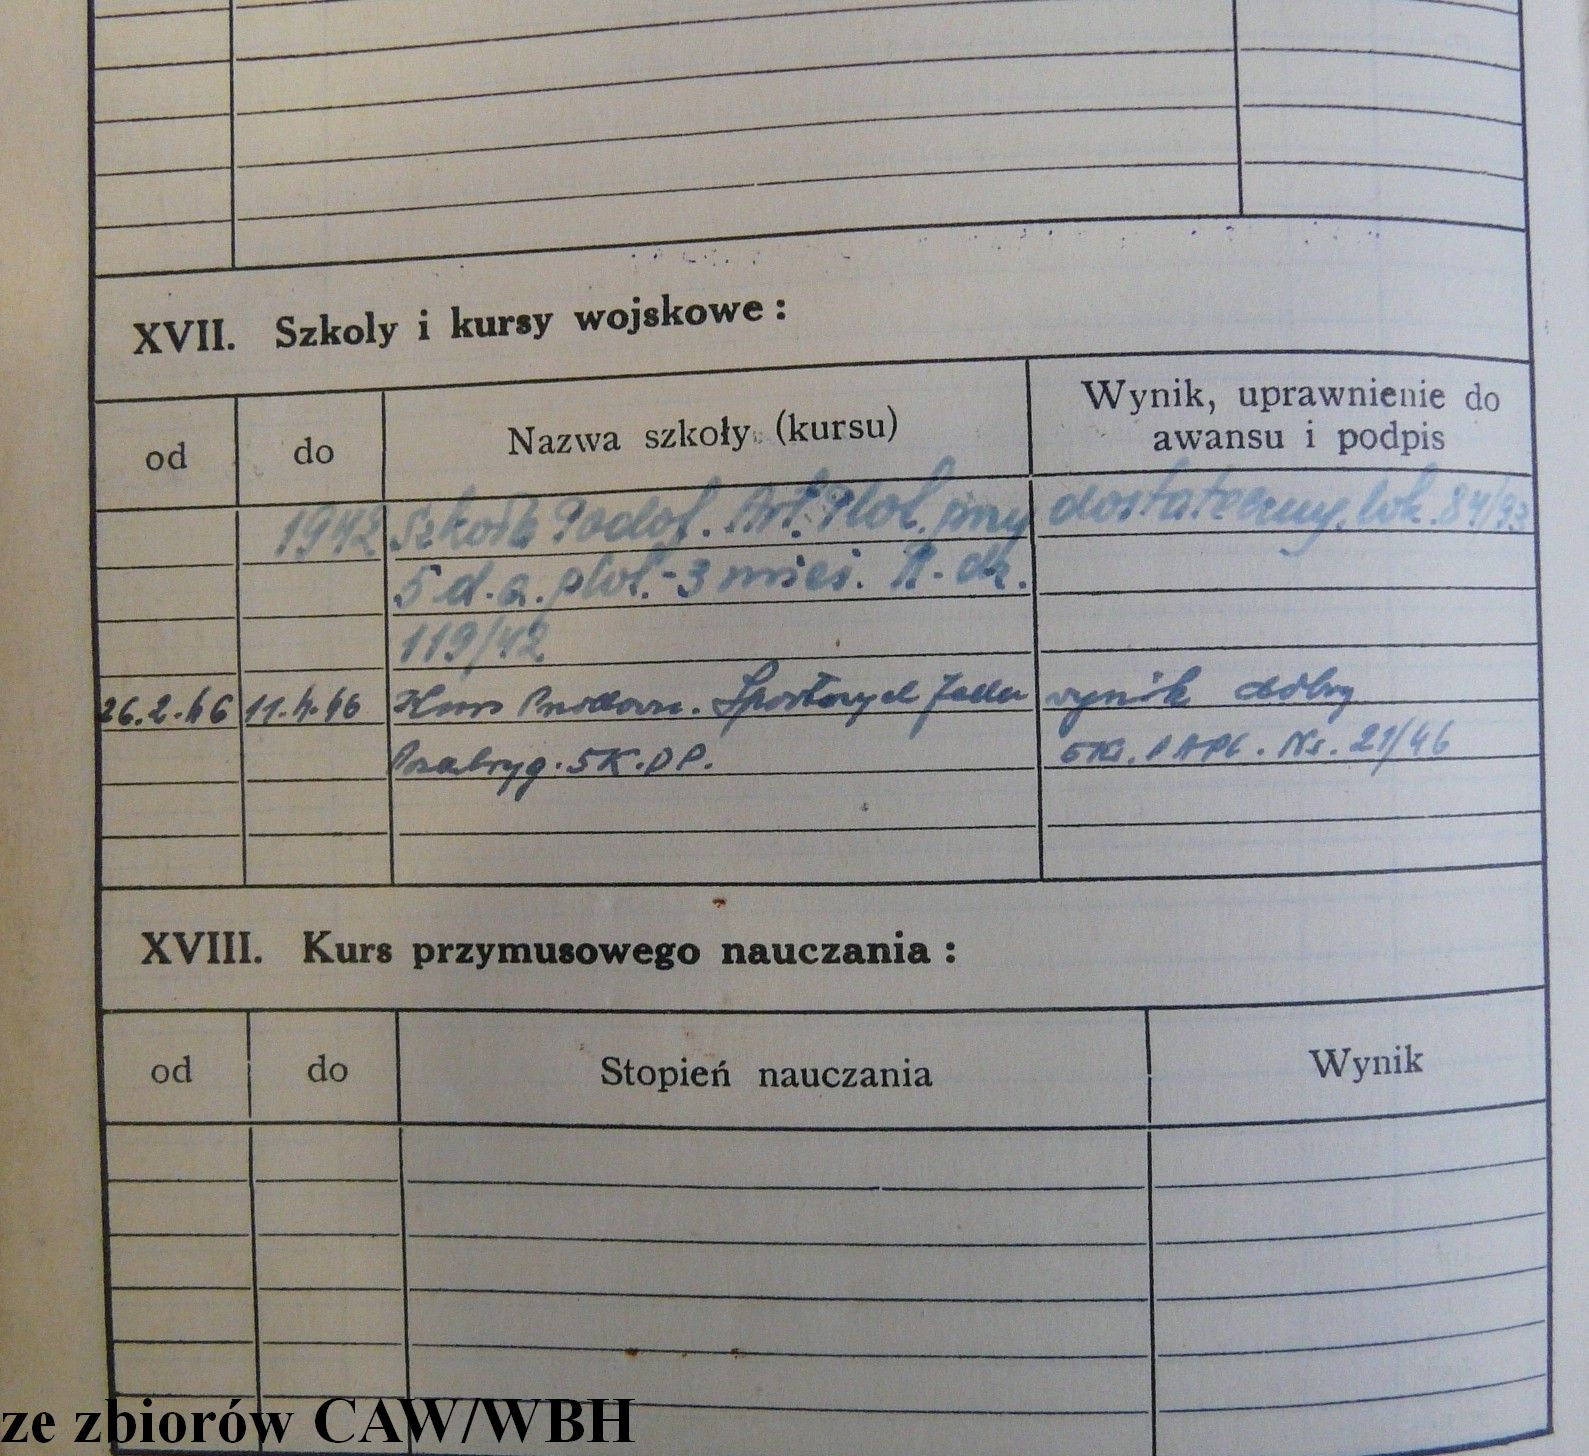 XVII. Szkoly i kursy wojskowe:
od do Nazwa szkoły (kursu) Wynik, uprawnienie do awansu i podpis
1942 Szkoła Podof. Art. Plot. przy dostateczny. lok. 84/93
5 d.a. plot. - 3 mies. R. dz.
119/42
26.2.46 11.4.46 Kurs wynik dobry
5K.DP. Nr. 21/46
XVIII. Kurs przymusowego nauczania:
od do Stopień nauczania Wynik
ze zbiorów CAW/WBH